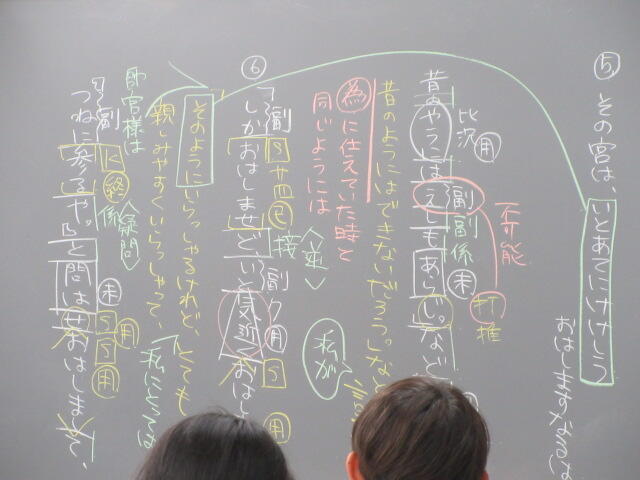 ⑤ その宮は、いとあてにけけしう
おはしますなるは
不可能
打推
比況 用 副 副 係 未
昔のやうにはえしもあらじ。など
昔のようにはできないだろう。など
私が
為に仕えていた時と
同じようには
⑥ 副 S サ四 已 接 〈逆〉 副 ク 用 S 用
しかおはしませど、いと気近くおはし
そのようにいらっしゃるけれど、とても
私にとっては
親しみやすくいらっしゃって、
宮様は
副 K 終 係 〈疑問〉 未 S 用 S 用
つねに参るや。」と問はせおはしまして、